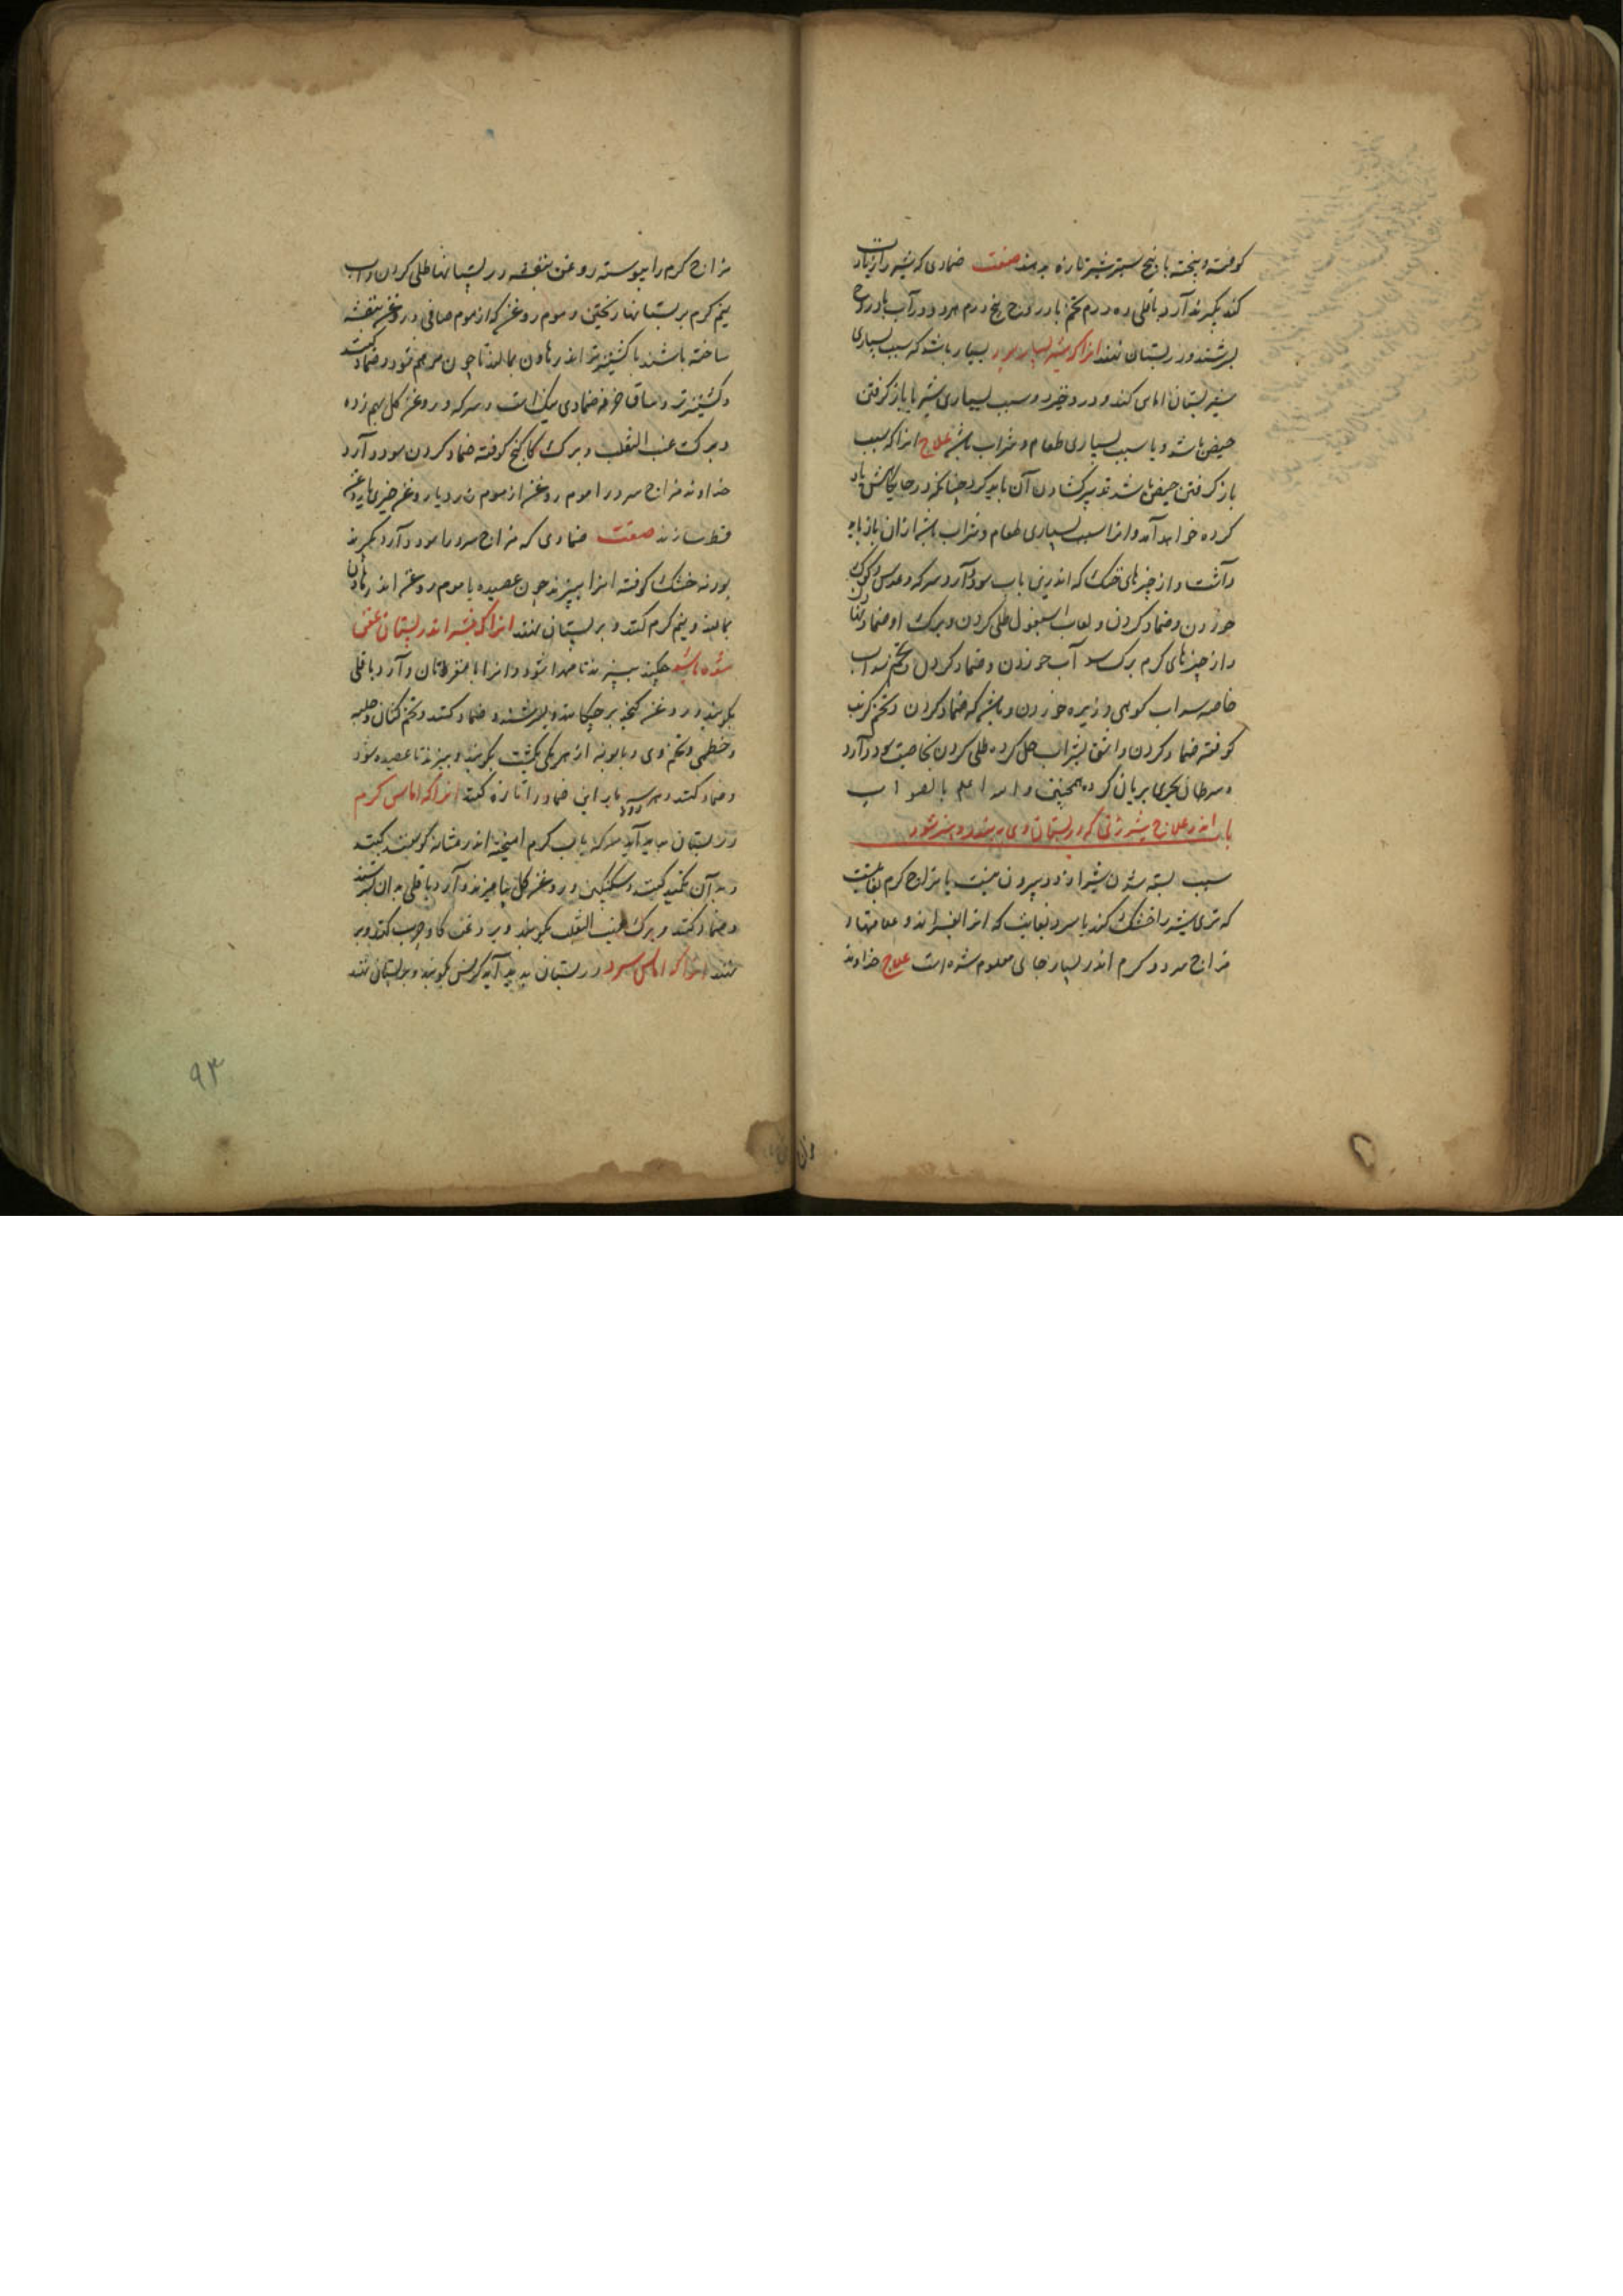 کوفته و پخته با پنج سیر شیر تازه بدهند صفت ضمادی که شیر را زیادت
کند بگیرند آرد باقلی ده درم تخم بادروج پنج درم هر دو در آب بادروج
بسرشند و در پستان نهند انرا که شیر بسیار بسیار باشد که سبب بسیاری
شیر پستان اماس کند و درد خیزد و سبب بسیاری شیر یا باز گرفتن
حیض باشد و یا سبب بسیاری طعام و شراب باشد علاج انرا که سبب
باز گرفتن حیض باشد تدبیر گشادن آن باید کرد چنانکه در جایگاهش یاد
کرده خواهد آمد و انرا سبب بسیاری طعام و شراب باشد از ان باز باید
داشت و از چیزهای خنک که اندرین باب سود دارد سرکه و عدس و کوک
خوردن و ضماد کردن و لعاب اسبغول طلی کردن و برک او ضماد
و از چیزهای گرم برک سداب خوردن و ضماد کردن و تخم سداب
خاصه سداب کوهی و زیره خوردن و باشیر که ضماد کردن و تخم کرنب
کوفته ضماد کردن و اشق بشراب حل کرده طلی کردن بخاصیت سود دارد
و سرطان بحری بریان کرده همچنین والله اعلم بالصواب
باب اندر علاج شیر زنی که در پستان وی ببندد و پنیر شود
سبب بسته شدن شیر از دو بیرون نیست یا مزاج گرم بغایت
که تری شیر را خشک کند یا سرد بغایت که انرا بفسراند و علامتهای
مزاج سرد و گرم اندر بسیار جای معلوم شده است علاج خداوند
مزاج گرم را پیوسته روغن بنفشه در پستانها طلی کردن و آب
نیم گرم بر پستانها ریختن و موم روغن که از موم صافی و روغن بنفشه
ساخته باشند با کشنیز تر اندر هاون بمالند تا چون مرهم شود و ضماد کنند
و کشنیز تر و ساق خرفه ضمادی نیک است و سرکه و روغن گل بهم زده
و برک عنب الثعلب و برک کاکنج کوفته ضماد کردن سود دارد
خداوند مزاج سرد را موم روغن از موم زرد یا روغن خیری یا روغن
قسط سازند صفت ضمادی که مزاج سرد را سود دارد بگیرند
پودنه خشک کوفته انرا بپزند چون عصیده با موم روغن اندر هاون
بمالند و نیم گرم کنند و بر پستان نهند انرا که شیر اندر پستان عفن
شده باشد بپزند تا مهرا شود و انرا با مغز نان و آرد باقلی
بگیرند و روغن کنجد بر چکانند و بسرشند و ضماد کنند و تخم کتان و حلبه
و خطمی و تخم وی و بابونه از هر یکی یکمشت بگیرند و بپزند تا عصیده شود
و ضماد کنند و هر سه بار این ضماد را تازه کنند انرا که اماس گرم
در پستان پدید آید سرکه باب گرم امیخته اندر مثانه گوسفند کنند
و بدان تکمید کنند و سکنگبین و روغن گل بیامیزند و آرد باقلی بدان بسرشند
و ضماد کنند و برک عنب الثعلب بکوبند و بروغن گاو چرب کنند و بر
نهند انرا که اماس سرد در پستان پدید آید کرفس کوبند و بر پستان نهند
۹۳